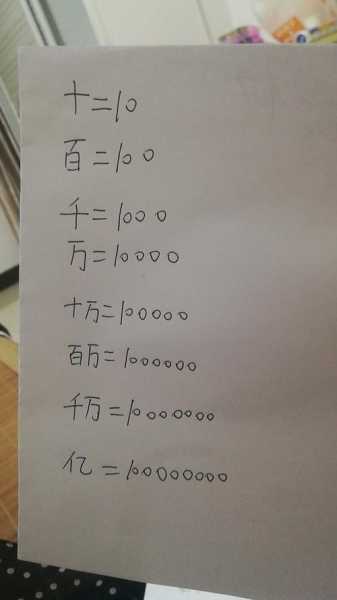 十=10
百=100
千=1000
万=10000
十万=100000
百万=1000000
千万=10000000
亿=100000000